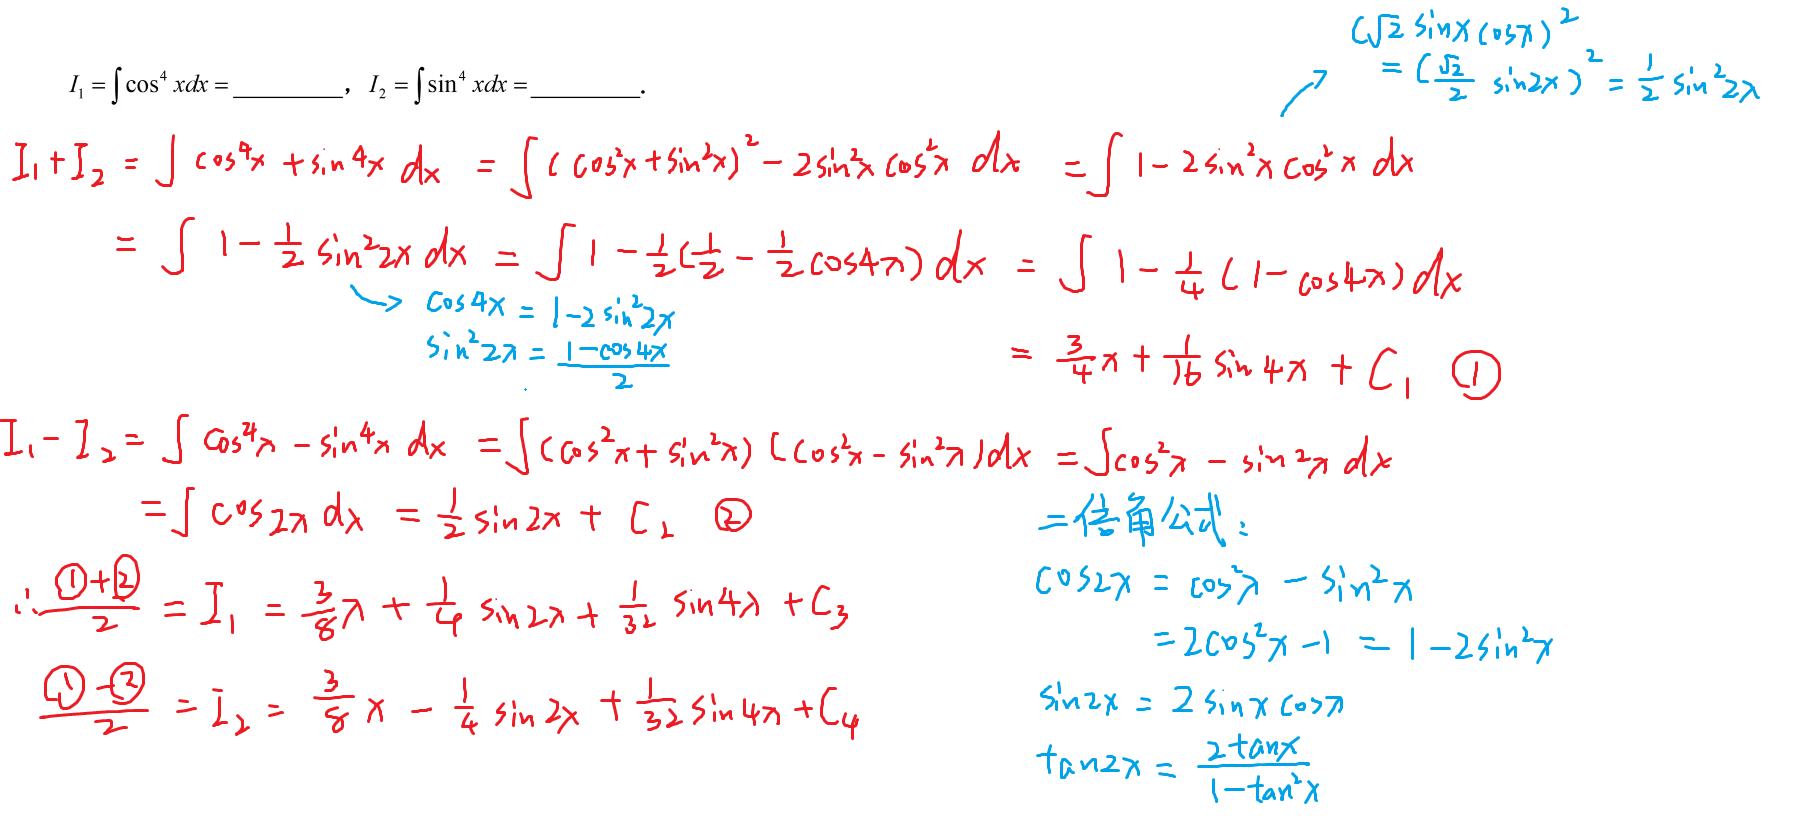 (√2 sinx cosx)²
= (√2/2 sin2x)² = 1/2 sin²2x
I₁ = ∫cos⁴ xdx = ________, I₂ = ∫sin⁴ xdx = ________.
I₁ + I₂ = ∫ cos⁴x + sin⁴x dx = ∫ (cos²x + sin²x)² − 2sin²x cos²x dx = ∫ 1 − 2sin²x cos²x dx
= ∫ 1 − 1/2 sin²2x dx = ∫ 1 − 1/2(1/2 − 1/2 cos4x) dx = ∫ 1 − 1/4 (1 − cos4x) dx
cos4x = 1 − 2sin²2x
sin²2x = (1 − cos4x)/2
= 3/4 x + 1/16 sin4x + C₁ ①
I₁ − I₂ = ∫ cos⁴x − sin⁴x dx = ∫(cos²x + sin²x)(cos²x − sin²x)dx = ∫cos²x − sin²x dx
= ∫ cos2x dx = 1/2 sin2x + C₂ ②
∴ (①+②)/2 = I₁ = 3/8 x + 1/4 sin2x + 1/32 sin4x + C₃
(①−②)/2 = I₂ = 3/8 x − 1/4 sin2x + 1/32 sin4x + C₄
二倍角公式:
cos2x = cos²x − sin²x
= 2cos²x − 1 = 1 − 2sin²x
sin2x = 2sinx cosx
tan2x = 2tanx/(1 − tan²x)